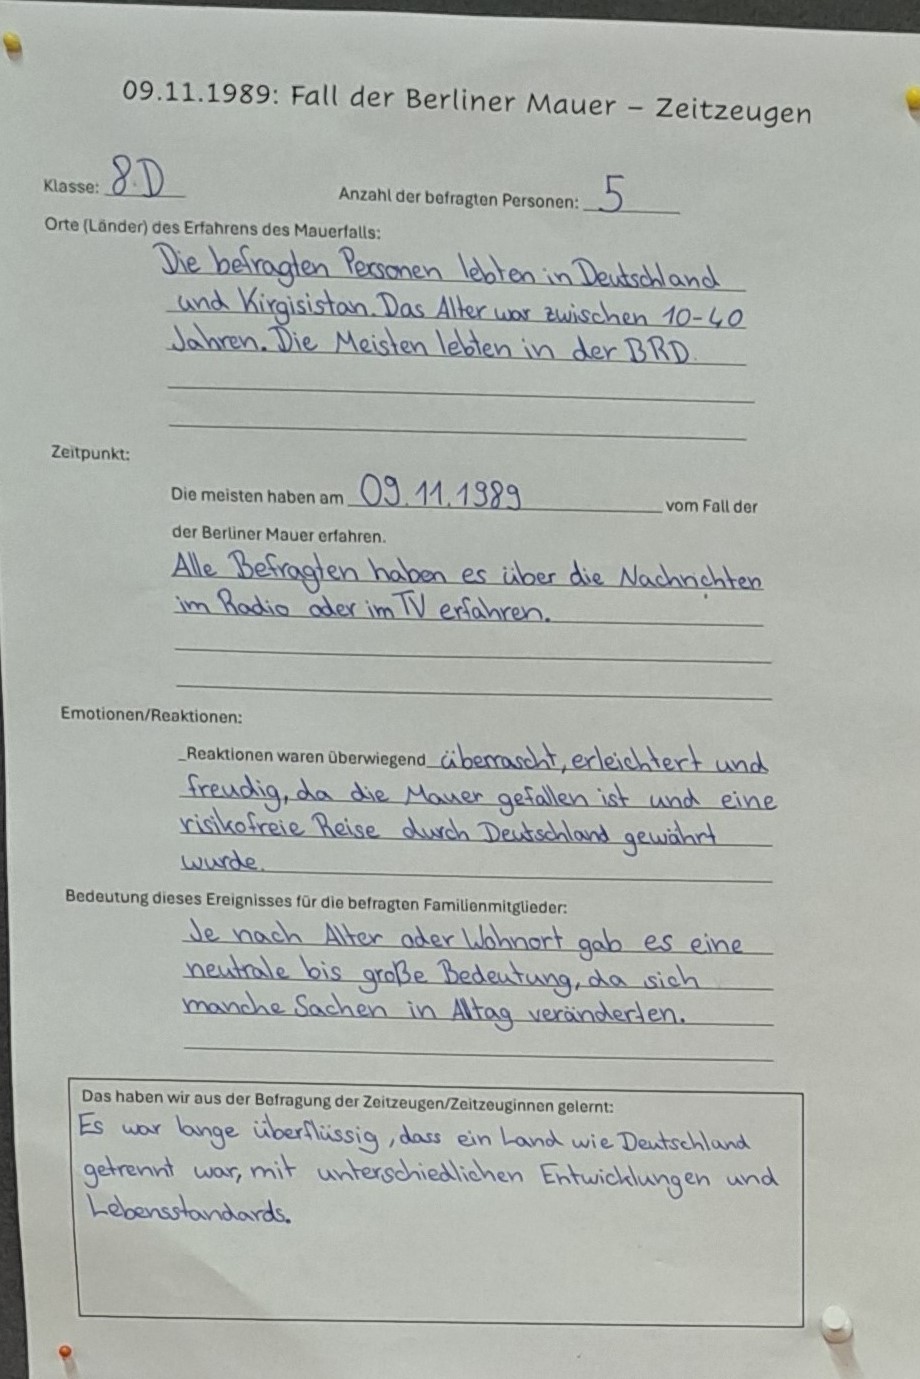 09.11.1989: Fall der Berliner Mauer – Zeitzeugen
Klasse: 8.D Anzahl der befragten Personen: 5
Orte (Länder) des Erfahrens des Mauerfalls:
Die befragten Personen lebten in Deutschland
und Kirgisistan. Das Alter war zwischen 10-40
Jahren. Die Meisten lebten in der BRD.
Zeitpunkt:
Die meisten haben am 09.11.1989 vom Fall der
der Berliner Mauer erfahren.
Alle Befragten haben es über die Nachrichten
im Radio oder im TV erfahren.
Emotionen/Reaktionen:
_Reaktionen waren überwiegend überrascht, erleichtert und
freudig, da die Mauer gefallen ist und eine
risikofreie Reise durch Deutschland gewährt
wurde.
Bedeutung dieses Ereignisses für die befragten Familienmitglieder:
Je nach Alter oder Wohnort gab es eine
neutrale bis große Bedeutung, da sich
manche Sachen in Alltag veränderten.
Das haben wir aus der Befragung der Zeitzeugen/Zeitzeuginnen gelernt:
Es war lange überflüssig, dass ein Land wie Deutschland
getrennt war, mit unterschiedlichen Entwicklungen und
Lebensstandards.